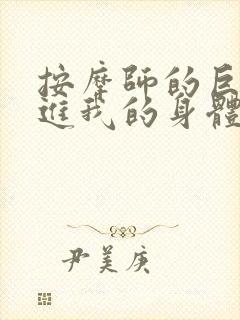 按摩師的巨
進我的身體
尹美庚